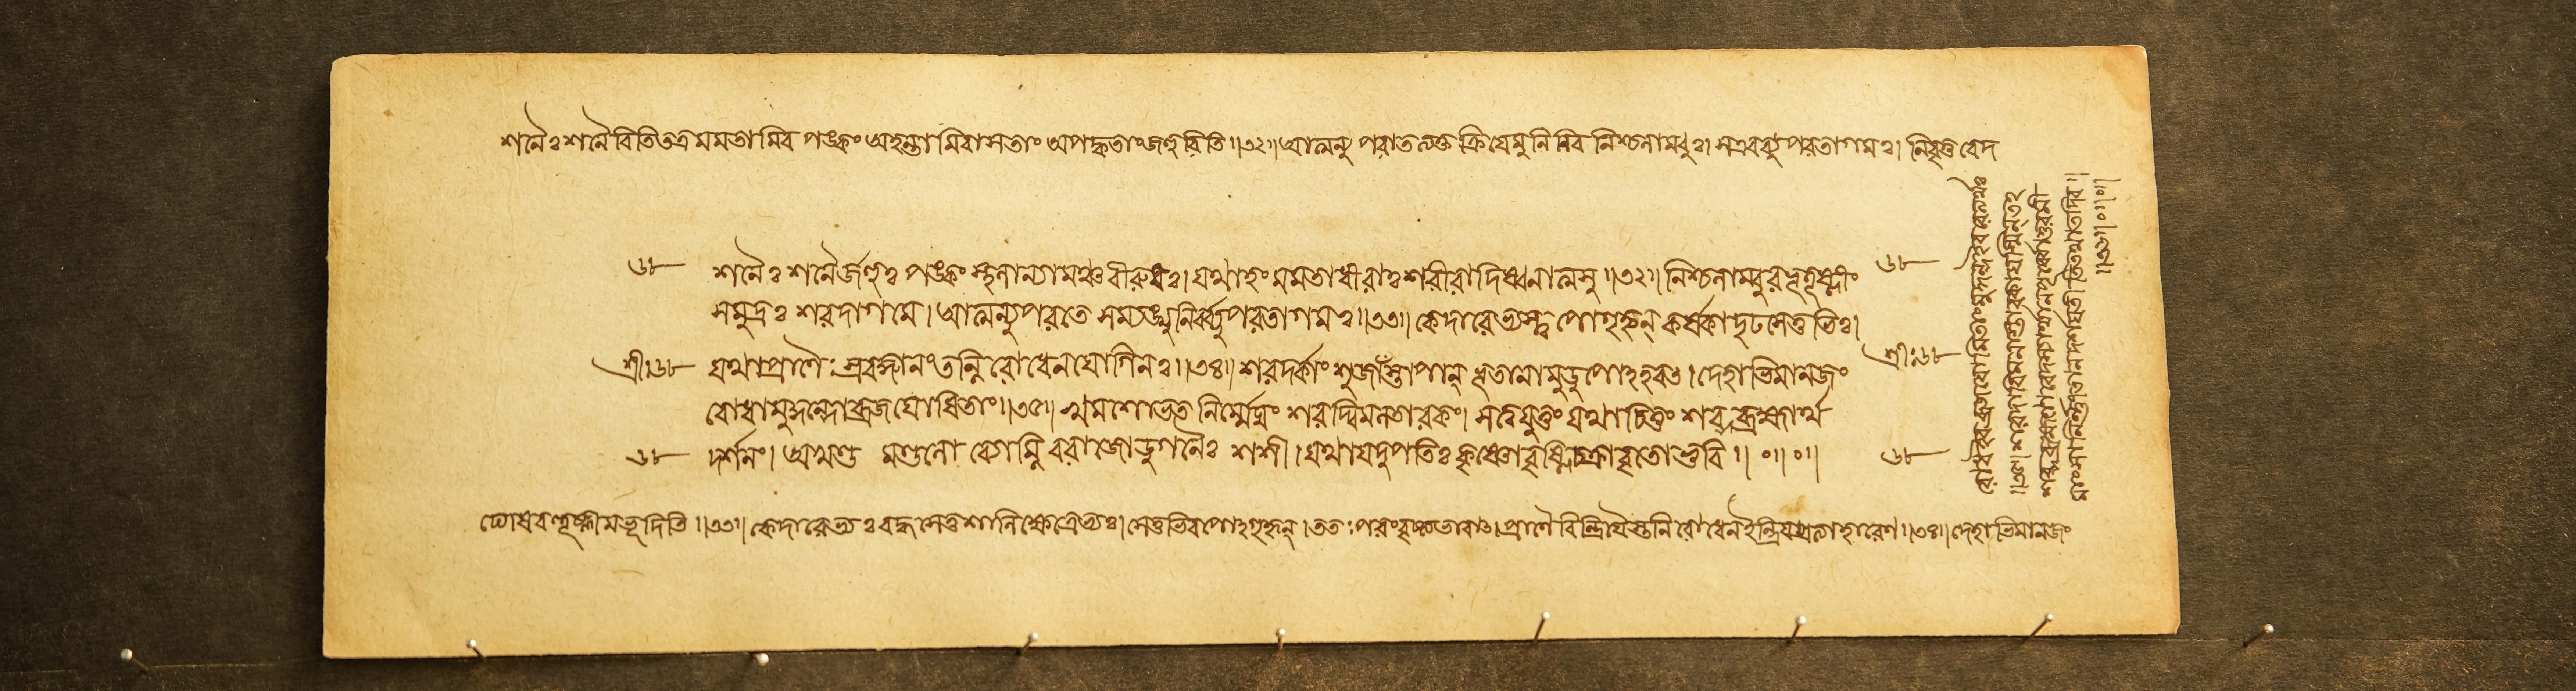 শনৈঃ শনৈরিতি তত্র মমতামিব পঙ্কং অহন্তামিবামতাং অপক্বতাং জহুরিতি ॥৩২॥ আত্মন্যুপরাতত্যক্তক্রিয়েমুনিরিব নিশ্চলাম্বুঃ। সএবব্যুপরতাগমঃ। নিবৃত্তবেদ
৬৮ শনৈঃ শনৈর্জহুঃ পঙ্কং স্থলান্যামঞ্চ বীরুধঃ। যথাহং মমতাং ধীরাঃ শরীরাদিষ্বনাত্মসু ॥৩২॥ নিশ্চলাম্বুরভূত্তূষ্ণীং ৬৮
সমুদ্রঃ শরদাগমে। আত্মন্যুপরতে সম্যঙ্মুনির্ব্ব্যুপরতাগমঃ ॥৩৩॥ কেদারেভ্যস্ত্বপোগৃহ্ণন্ কর্ষকাদৃঢসেতুভিঃ।
শ্রীঃ৬৮ যথাপ্রাণৈঃ স্রবজ্জ্ঞানং তন্নিরোধেনযোগিনঃ ॥৩৪॥ শরদর্কাংশুজাঁস্তাপান্ ভূতানামুডুপোঽহরৎ। দেহাভিমানজং শ্রীঃ৬৮
বোধামুকুন্দোব্রজযোষিতাং ॥৩৫॥ খমশোভত নির্ম্মেঘং শরদ্বিমলতারকং। সত্বযুক্তং যথাচিত্তং শব্দব্রহ্মার্থ
৬৮ দর্শনং। অখণ্ড মণ্ডলো ব্যোম্নি ররাজোডুগনৈঃ শশী। যথাযদুপতিঃ কৃষ্ণোবৃষ্ণিচক্রাবৃতোভুবি ॥ ০॥ ০॥ ৬৮
ঘোষবণ্তূষ্ণীমভূদিতি ॥৩৩॥ কেদারেভ্যঃ বদ্ধসেতুশালিক্ষেত্রেভ্যঃ। সেতুভিরপোঽগৃহ্নন্। ততঃপরংবৃষ্ট্যভাবাৎ। প্রাণৈরিন্দ্রিয়ৈস্তন্নিরোধেনইন্দ্রিয়প্রত্যাহারেণ ॥৩৪॥ দেহাভিমানজং
॥৩৫॥ শরদাবিমলাস্তারকাযস্মিন্ তৎ
শব্দব্রহ্মণোবেদস্যার্থান্ পূর্ব্বোত্তরমী
॥৩৬॥০॥০॥